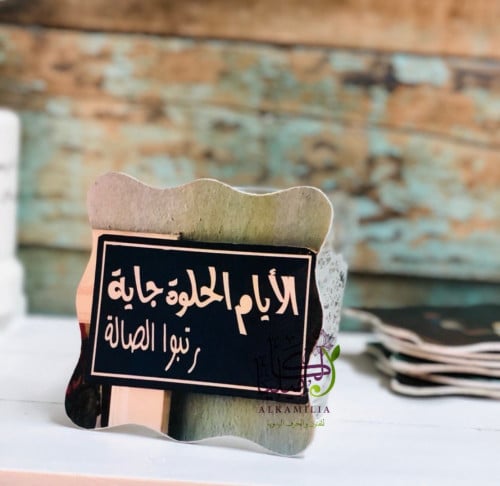 الأيام الحلوة جاية
رتبوا الصالة
ALKAMILIA